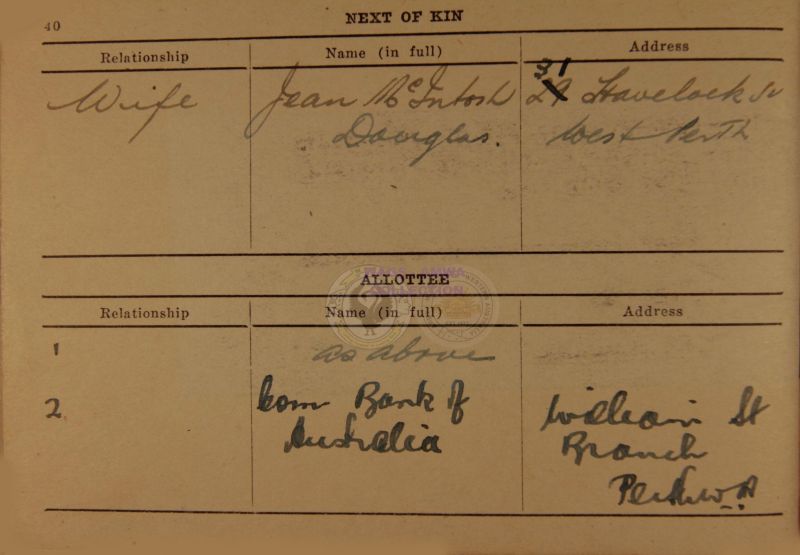 40
NEXT OF KIN
Relationship Name (in full) Address
31
Wife Jean McIntosh 29 Havelock St
Douglas. West Perth
ALLOTTEE
COLLECTION
Relationship Name (in full) Address
1 as above
2 Com Bank of William St
Australia Branch
Perth W.A